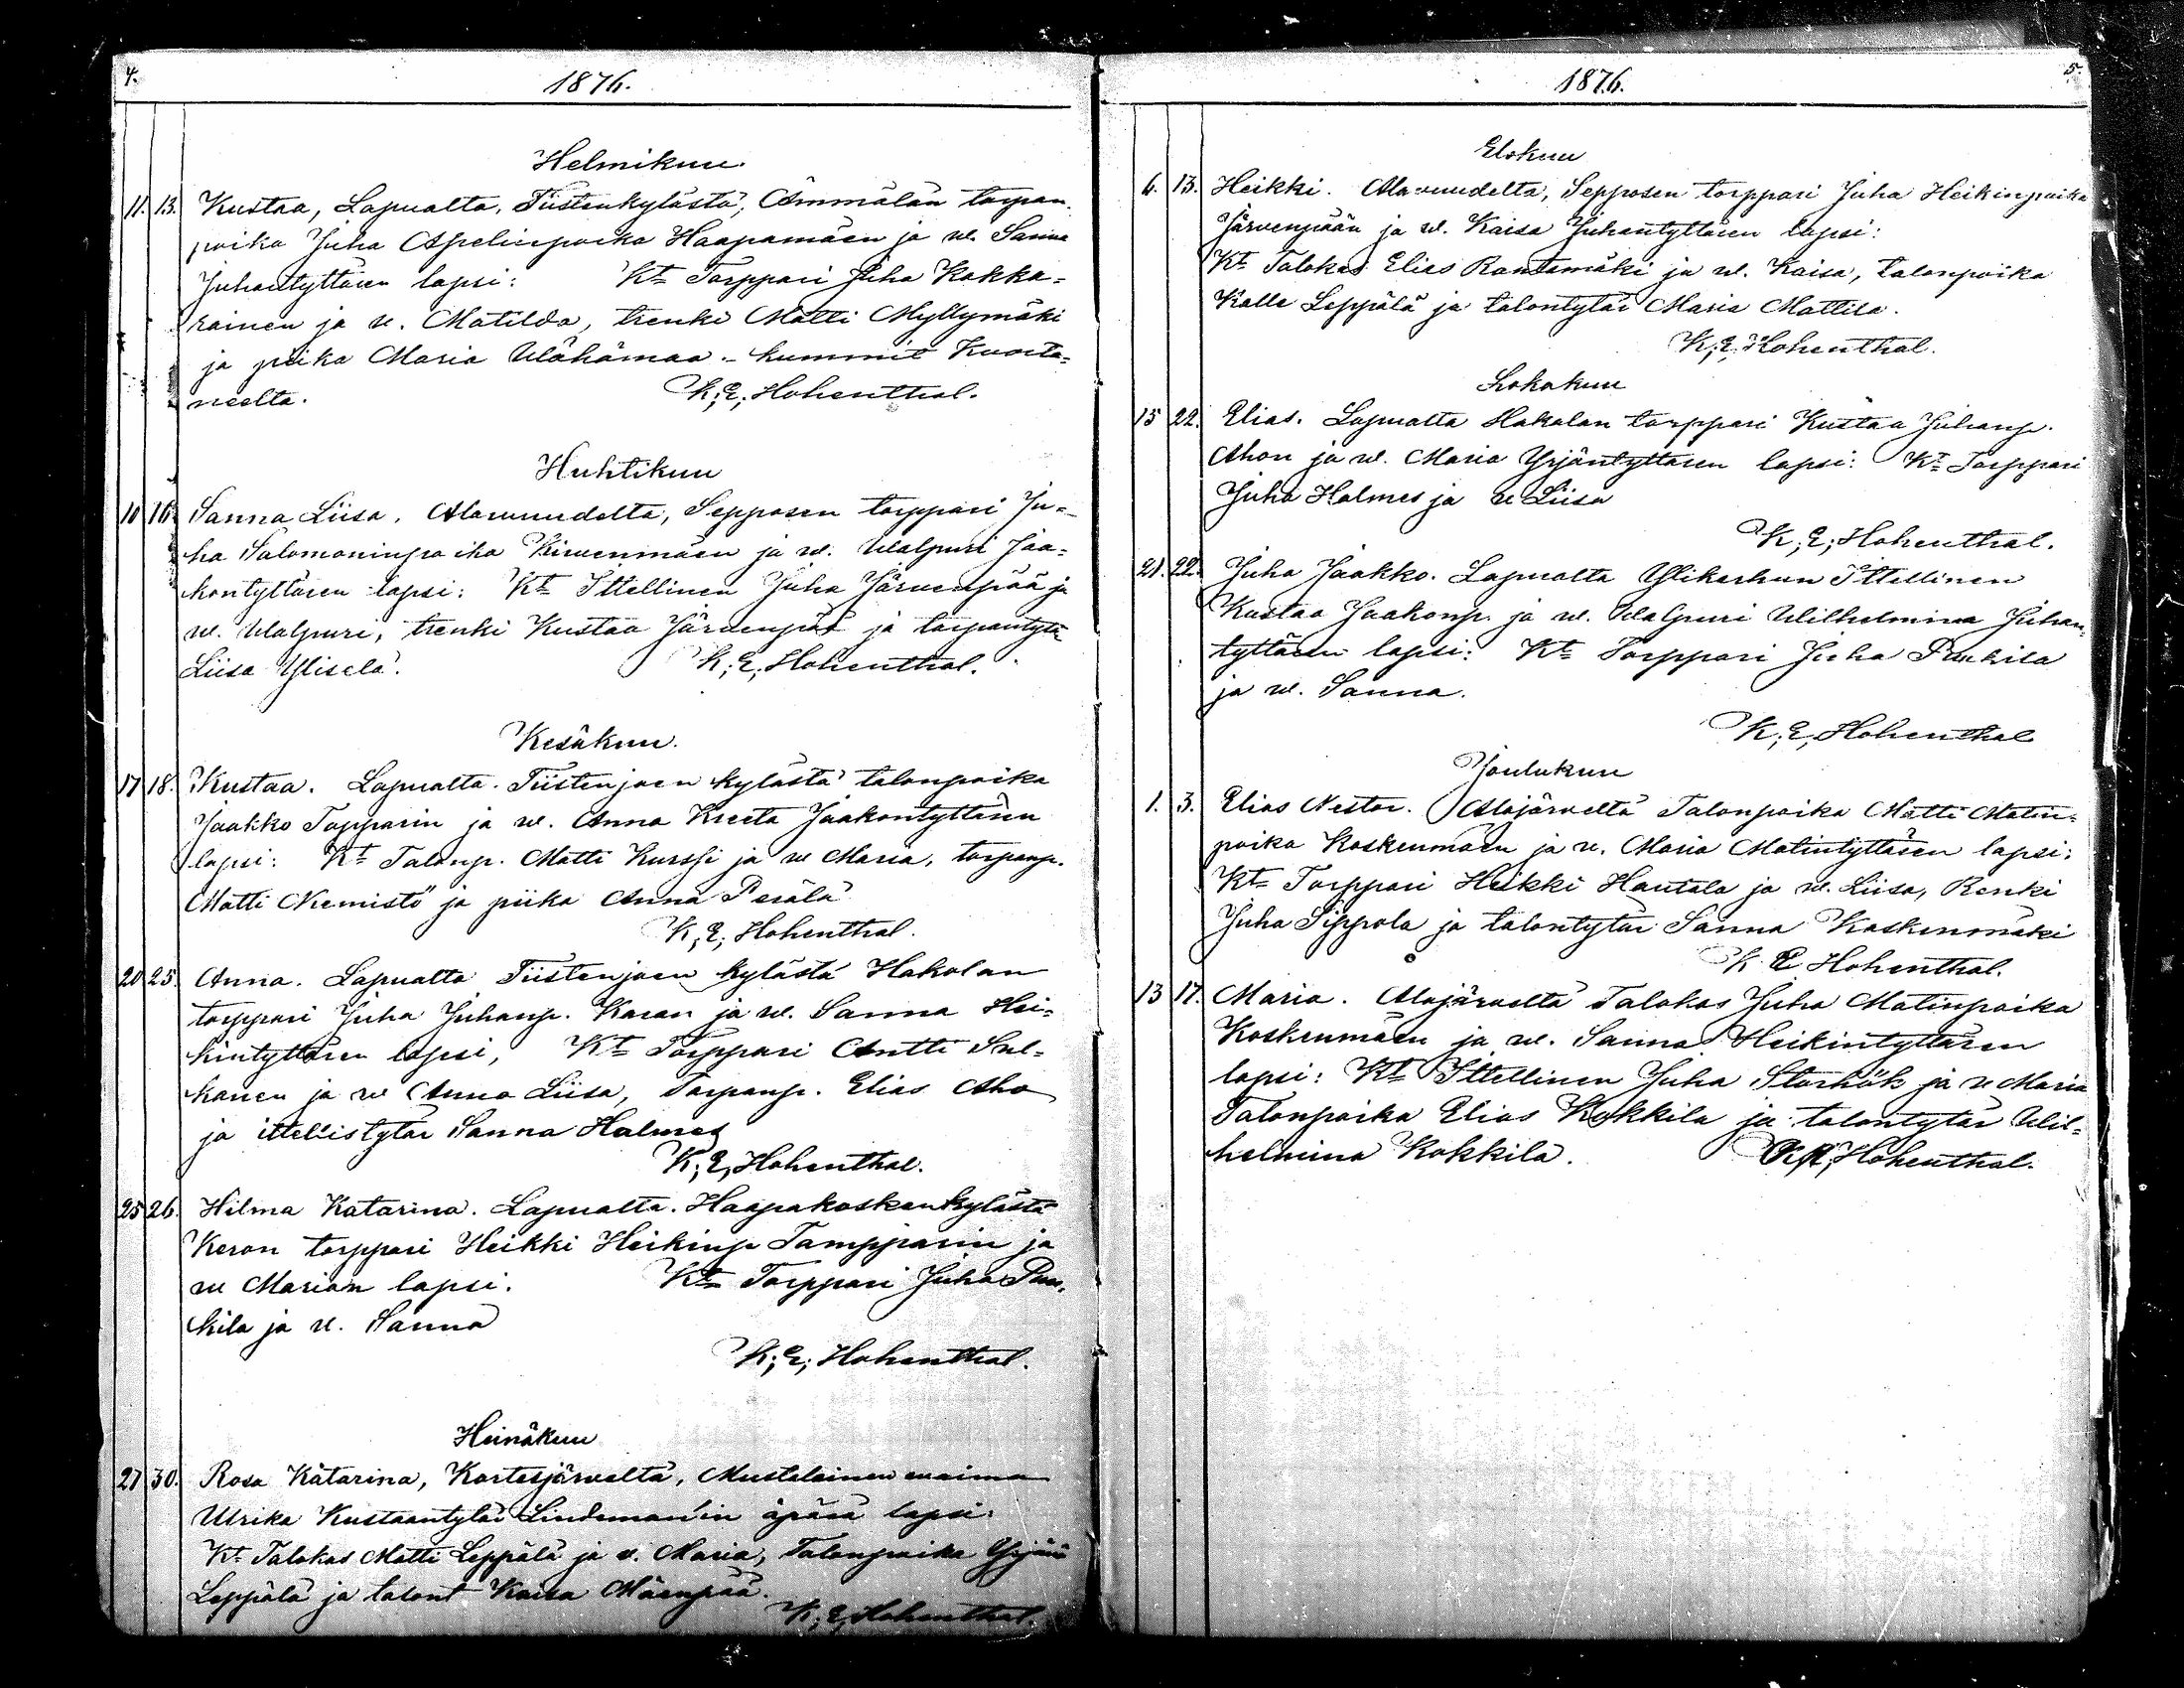 4.
1876.
Helmikuu.
11. 13. Kustaa, Lapualta, Tiistenkylästä, Ämmälän torpan
poika Juha Apelinpoika Haapamäen ja w. Sanna
Juhantyttären lapsi: Kt. Torppari Juha Kakka-
rainen ja w. Matilda, trenki Matti Myllymäki
ja piika Maria Wähämaa. - kummit Kuorta-
neelta. K, E, Hohenthal.
Huhtikuu
10 16. Sanna Liisa. Alawuudelta, Sepposen torppari Ju-
ha Salomoninpoika Kiwenmäen ja w. Walpuri Jaa-
kontyttären lapsi: Kt. Ittellinen Juha Järwenpää ja
w. Walpuri, trenki Kustaa Järwenpää ja torpantytä
Liisa Yliselä. K, E, Hohenthal.
Kesäkuu.
17 18. Kustaa. Lapualta. Tiistenjoen kylästä talonpoika
Jaakko Topparin ja w. Anna Kreeta Jaakontyttären
lapsi: Kt. Talonp. Matti Kurssi ja w Maria, torpanp.
Matti Niemistö ja piika Anna Perälä
K, E, Hohenthal.
20 25. Anna. Lapualta Tiistenjoen kylästä Hakolan
torppari Juha Juhanp. Karan ja w. Sanna Hei-
kintyttären lapsi, Kt. Torppari Antti Sul-
kanen ja w Anna Liisa, Torpanp. Elias Aho
ja ittellistytär Sanna Halmes
K, E, Hohenthal.
25 26. Hilma Katarina. Lapualta. Haapakosken kylästä
Keron torppari Heikki Heikinp Tampparin ja
w Marian lapsi. Kt. Torppari Juha Pau-
kila ja w. Sanna
K, E, Hohenthal.
Heinäkuu
27 30. Rosa Katarina, Kortesjärweltä, Mustalainen waimo
Ulrika Kustaantytär Lindeman'in äpärä lapsi:
Kt. Talokas Matti Leppälä ja w. Maria, Talonpoika Yrjänä
Leppälä ja talont Kaisa Mäenpää.
K, E, Hohenthal.
5.
1876.
Elokuu
6. 13. Heikki. Alawuudelta, Sepposen torppari Juha Heikinpoika
Järwenpään ja w. Kaisa Juhantyttären lapsi:
Kt. Talokas Elias Rantamäki ja w. Kaisa, talonpoika
Kalle Leppälä ja talontytär Maria Mattila.
K, E, Hohenthal.
Lokakuu
15 22. Elias. Lapualta Hakolan torppari Kustaa Juhanp.
Ahon ja w. Maria Yrjäntyttären lapsi: Kt. Torppari
Juha Halmes ja w Liisa
K, E, Hohenthal.
21. 22. Juha Jaakko. Lapualta Ylikarhun Ittellinen
Kustaa Jaakonp. ja w. Walpuri Wilhelmina Juhan-
tyttären lapsi: Kt. Torppari Juha Paukila
ja w. Sanna.
K, E, Hohenthal
Joulukuu
1. 3. Elias Nestor. Alajärweltä Talonpoika Matti Matin-
poika Koskenmäen ja w. Maria Matintyttären lapsi:
Kt. Torppari Heikki Hautala ja w. Liisa, Renki
Juha Sippola ja talontytär Sanna Koskenmäki
K E Hohenthal.
13 17. Maria. Alajärweltä Talokas Juha Matinpoika
Koskenmäen ja w. Sanna Heikintyttären
lapsi: Kt. Ittellinen Juha Storhök ja w Maria
Talonpoika Elias Kokkila ja talontytär Wil-
helmina Kokkila. Hohenthal.